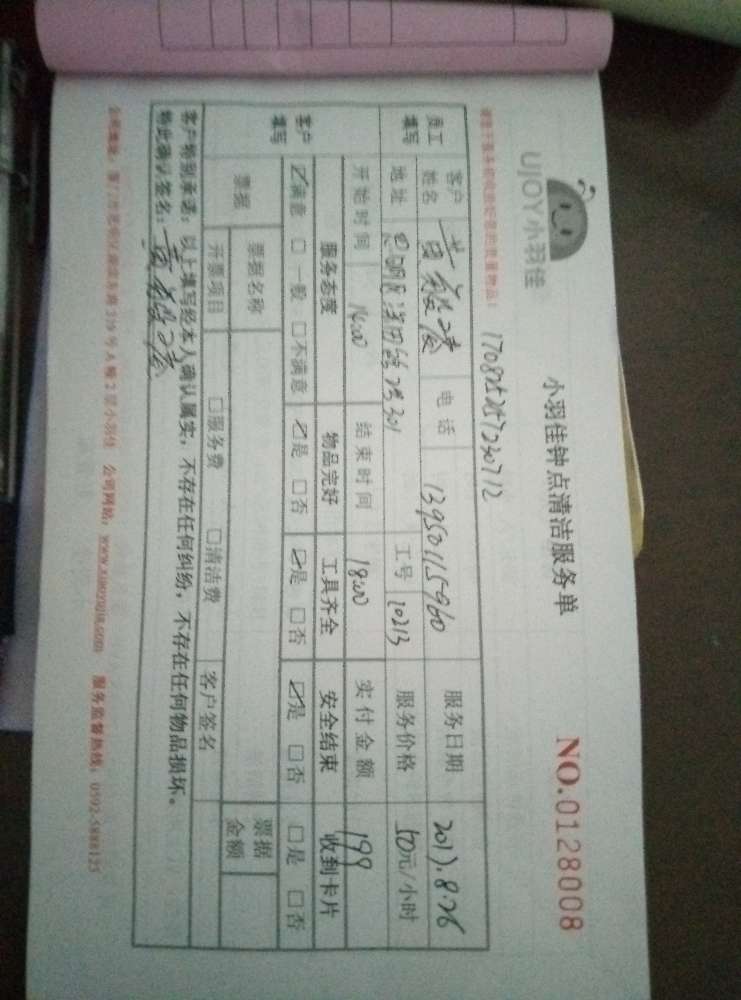 UJOY小羽佳
小羽佳钟点清洁服务单
NO.0128008
员工填写
客户姓名
电话 13950115960
服务日期 2017.8.26
地址
工号 10213
服务价格 50元/小时
开始时间 14:00
结束时间 18:00
实付金额 199
客户填写
服务态度 物品完好 工具齐全 安全结束 收到卡片
☑满意 □一般 □不满意 ☑是 □否 ☑是 □否 ☑是 □否 □是 □否
票据
票据名称
票据金额
开票项目 □服务费 □清洁费 客户签名
客户特别承诺:以上填写经本人确认属实,不存在任何纠纷,不存在任何物品损坏。
特此确认签名:
2层小羽佳 公司网站:www.xiaoyujia.com 服务监督热线:0592-5888125